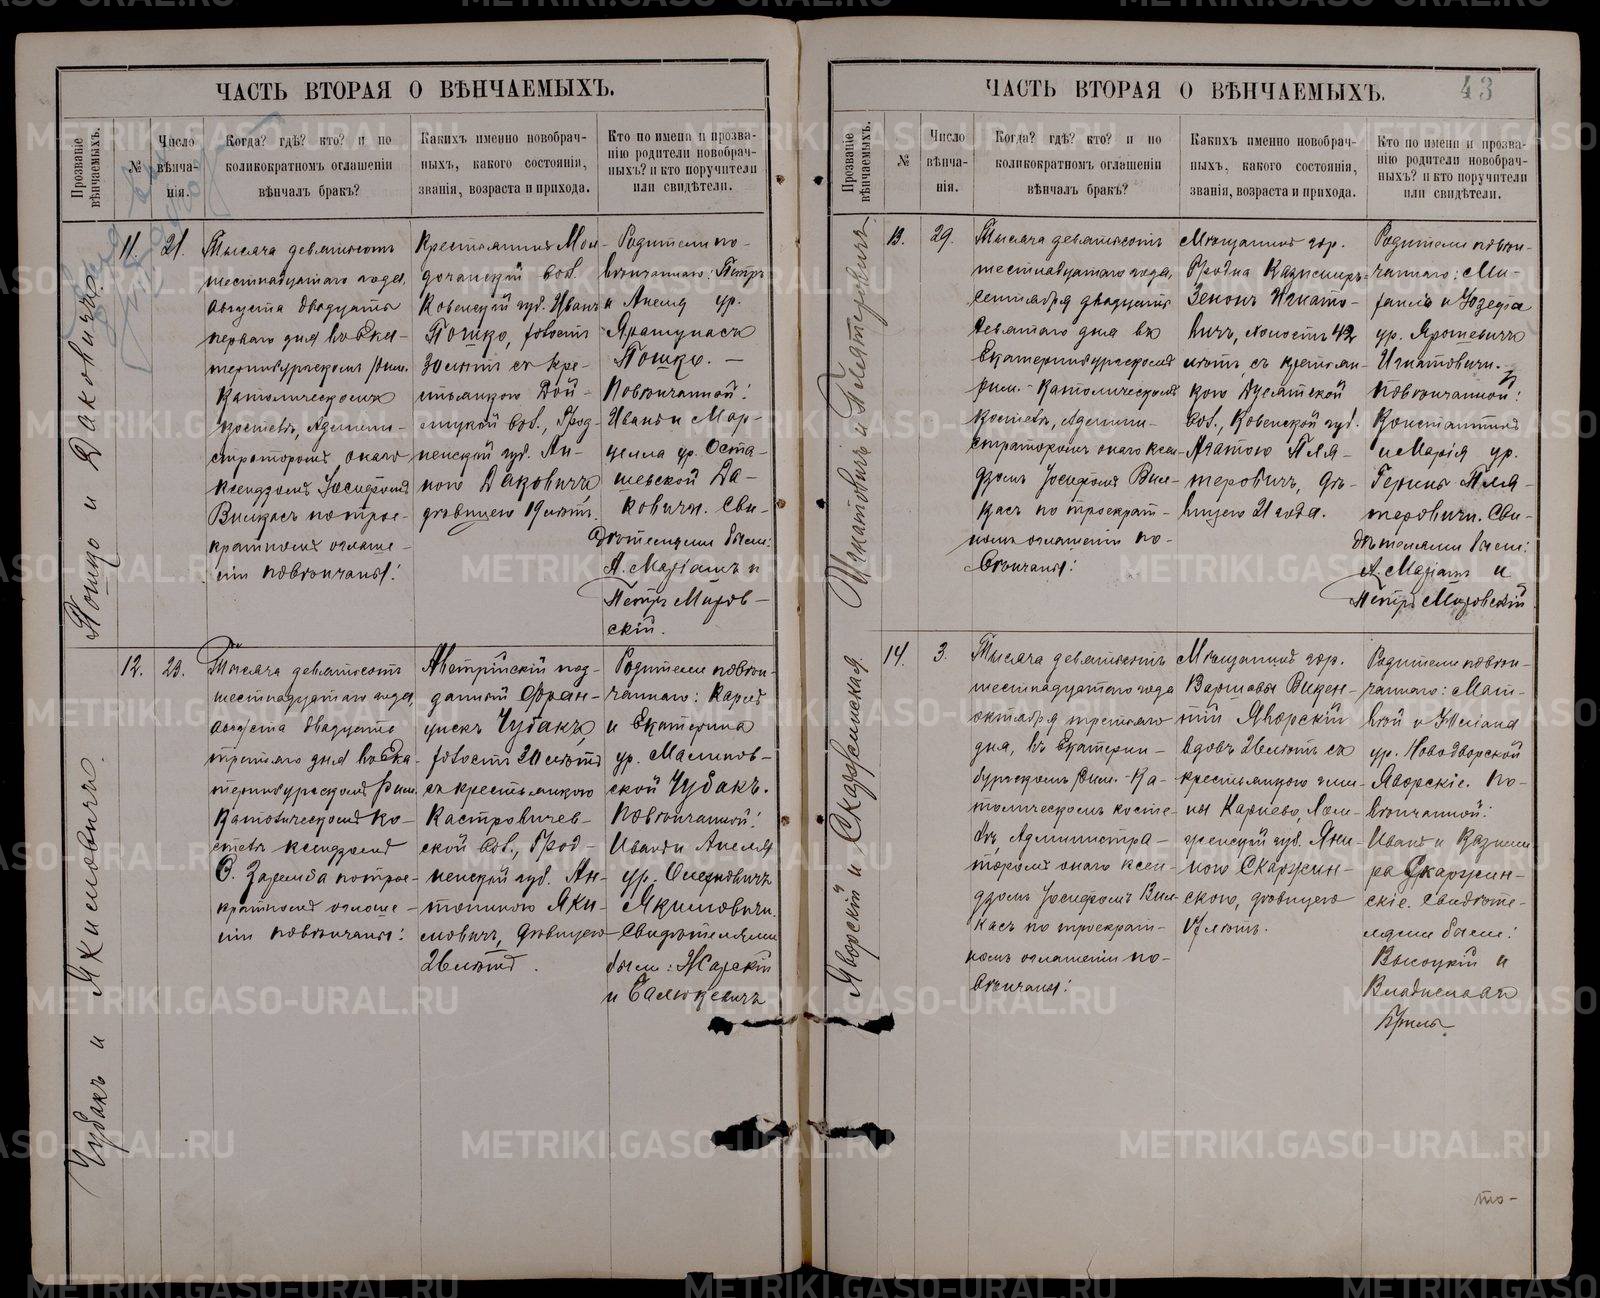 ЧАСТЬ ВТОРАЯ О ВѢНЧАЕМЫХЪ.
Прозваніе вѣнчаемыхъ.
№
Число
вѣнча-
нія.
Когда? гдѣ? кто? и по
коликократномъ оглашеніи
вѣнчалъ бракъ?
Какихъ именно новобрач-
ныхъ, какого состоянія,
званія, возраста и прихода.
Кто по имени и прозва-
нію родители новобрач-
ныхъ? и кто поручители
или свидѣтели.
Пошко и Даковичъ.
11.
21.
Тысяча девятьсотъ
шестнадцатаго года,
Августа двадцать
перваго дня въ Ека-
теринбургскомъ Рим.
Католическомъ
костелѣ, Админи-
страторомъ онаго
ксендзомъ Іосифомъ
Вилкасъ по трое-
кратномъ оглаше-
ніи повѣнчаны:
Крестьянинъ
вол.
Ковенской губ. Иванъ
Пошко, холостъ
30 лѣтъ съ кре-
стьянкою
вол., Грод-
ненской губ. Ан-
ною Даковичъ,
дѣвицею 19 лѣтъ.
Родители по-
вѣнчаннаго: Петръ
и Анеля ур.
Пошко. —
Повѣнчанной:
Иванъ и Мар-
целла ур. Оста-
шевской Да-
ковичи. Сви-
дѣтелями были:
А. Маріамъ и
Петръ Миров-
скій.
Чубакъ и Якимовичъ.
12.
23.
Тысяча девятьсотъ
шестнадцатаго года,
августа двадцать
третьяго дня въ Ека-
теринбургскомъ Рим.
Католическомъ ко-
стелѣ ксендзомъ
О. Заремба по трое-
кратномъ оглаше-
ніи повѣнчаны:
Австрійскій под-
данный Фран-
цискъ Чубакъ,
холостъ 30 лѣтъ
съ крестьянкою
Кастровичев-
ской вол., Грод-
ненской губ. Ан-
тониною Яки-
мовичъ, дѣвицею
26 лѣтъ.
Родители повѣн-
чаннаго: Карлъ
и Екатерина
ур. Малинов-
ской Чубакъ.
Повѣнчанной:
Иванъ и Анеля
ур.
Якимовичи.
Свидѣтелями
были: Жарскій
и Балюкевичъ
ЧАСТЬ ВТОРАЯ О ВѢНЧАЕМЫХЪ.
43
Прозваніе вѣнчаемыхъ.
№
Число
вѣнча-
нія.
Когда? гдѣ? кто? и по
коликократномъ оглашеніи
вѣнчалъ бракъ?
Какихъ именно новобрач-
ныхъ, какого состоянія,
званія, возраста и прихода.
Кто по имени и прозва-
нію родители новобрач-
ныхъ? и кто поручители
или свидѣтели.
Игнатовичъ и Плятеровичъ.
13.
29.
Тысяча девятьсотъ
шестнадцатаго года,
Сентября двадцать
девятаго дня въ
Екатеринбургскомъ
рим.-католическомъ
костелѣ, Админи-
страторомъ онаго ксен-
дзомъ Іосифомъ Вил-
касъ по троекрат-
номъ оглашеніи по-
вѣнчаны:
Мѣщанинъ гор.
Гродна Казимиръ-
Зенонъ Игнато-
вичъ, холостъ 42
лѣтъ, съ крестьян-
кою Дусятской
вол., Ковенской губ.
Агатою Пля-
теровичъ, дѣ-
вицею 21 года.
Родители повѣн-
чаннаго: Ми-
хаилъ и Юзефа
ур. Ярошевичъ
Игнатовичи.
Повѣнчанной:
Константинъ
и Марія ур.
Геринъ Пля-
теровичи. Сви-
дѣтелями были:
А. Маріамъ и
Петръ Мировскій
Яворскій и Скаржинская.
14.
3.
Тысяча девятьсотъ
шестнадцатаго года
октября третьяго
дня, въ Екатерин-
бургскомъ Рим.-Ка-
толическомъ косте-
лѣ, Администра-
торомъ онаго ксен-
дзомъ Іосифомъ Вил-
касъ по троекрат-
номъ оглашеніи по-
вѣнчаны:
Мѣщанинъ гор.
Варшавы Викен-
тій Яворскій
вдовъ 26 лѣтъ съ
крестьянкою гми-
ны Карнево, Лом-
жинской губ. Яни-
ною Скаржин-
скою, дѣвицею
17 лѣтъ.
Родители повѣн-
чаннаго: Мат-
вѣй и
ур. Новодворской
Яворскіе. По-
вѣнчанной:
Иванъ и Казими-
ра Скаржин-
скіе. Свидѣте-
лями были:
Высоцкій и
Владиславъ
Бриль.
то-
METRIKI.GASO-URAL.RU